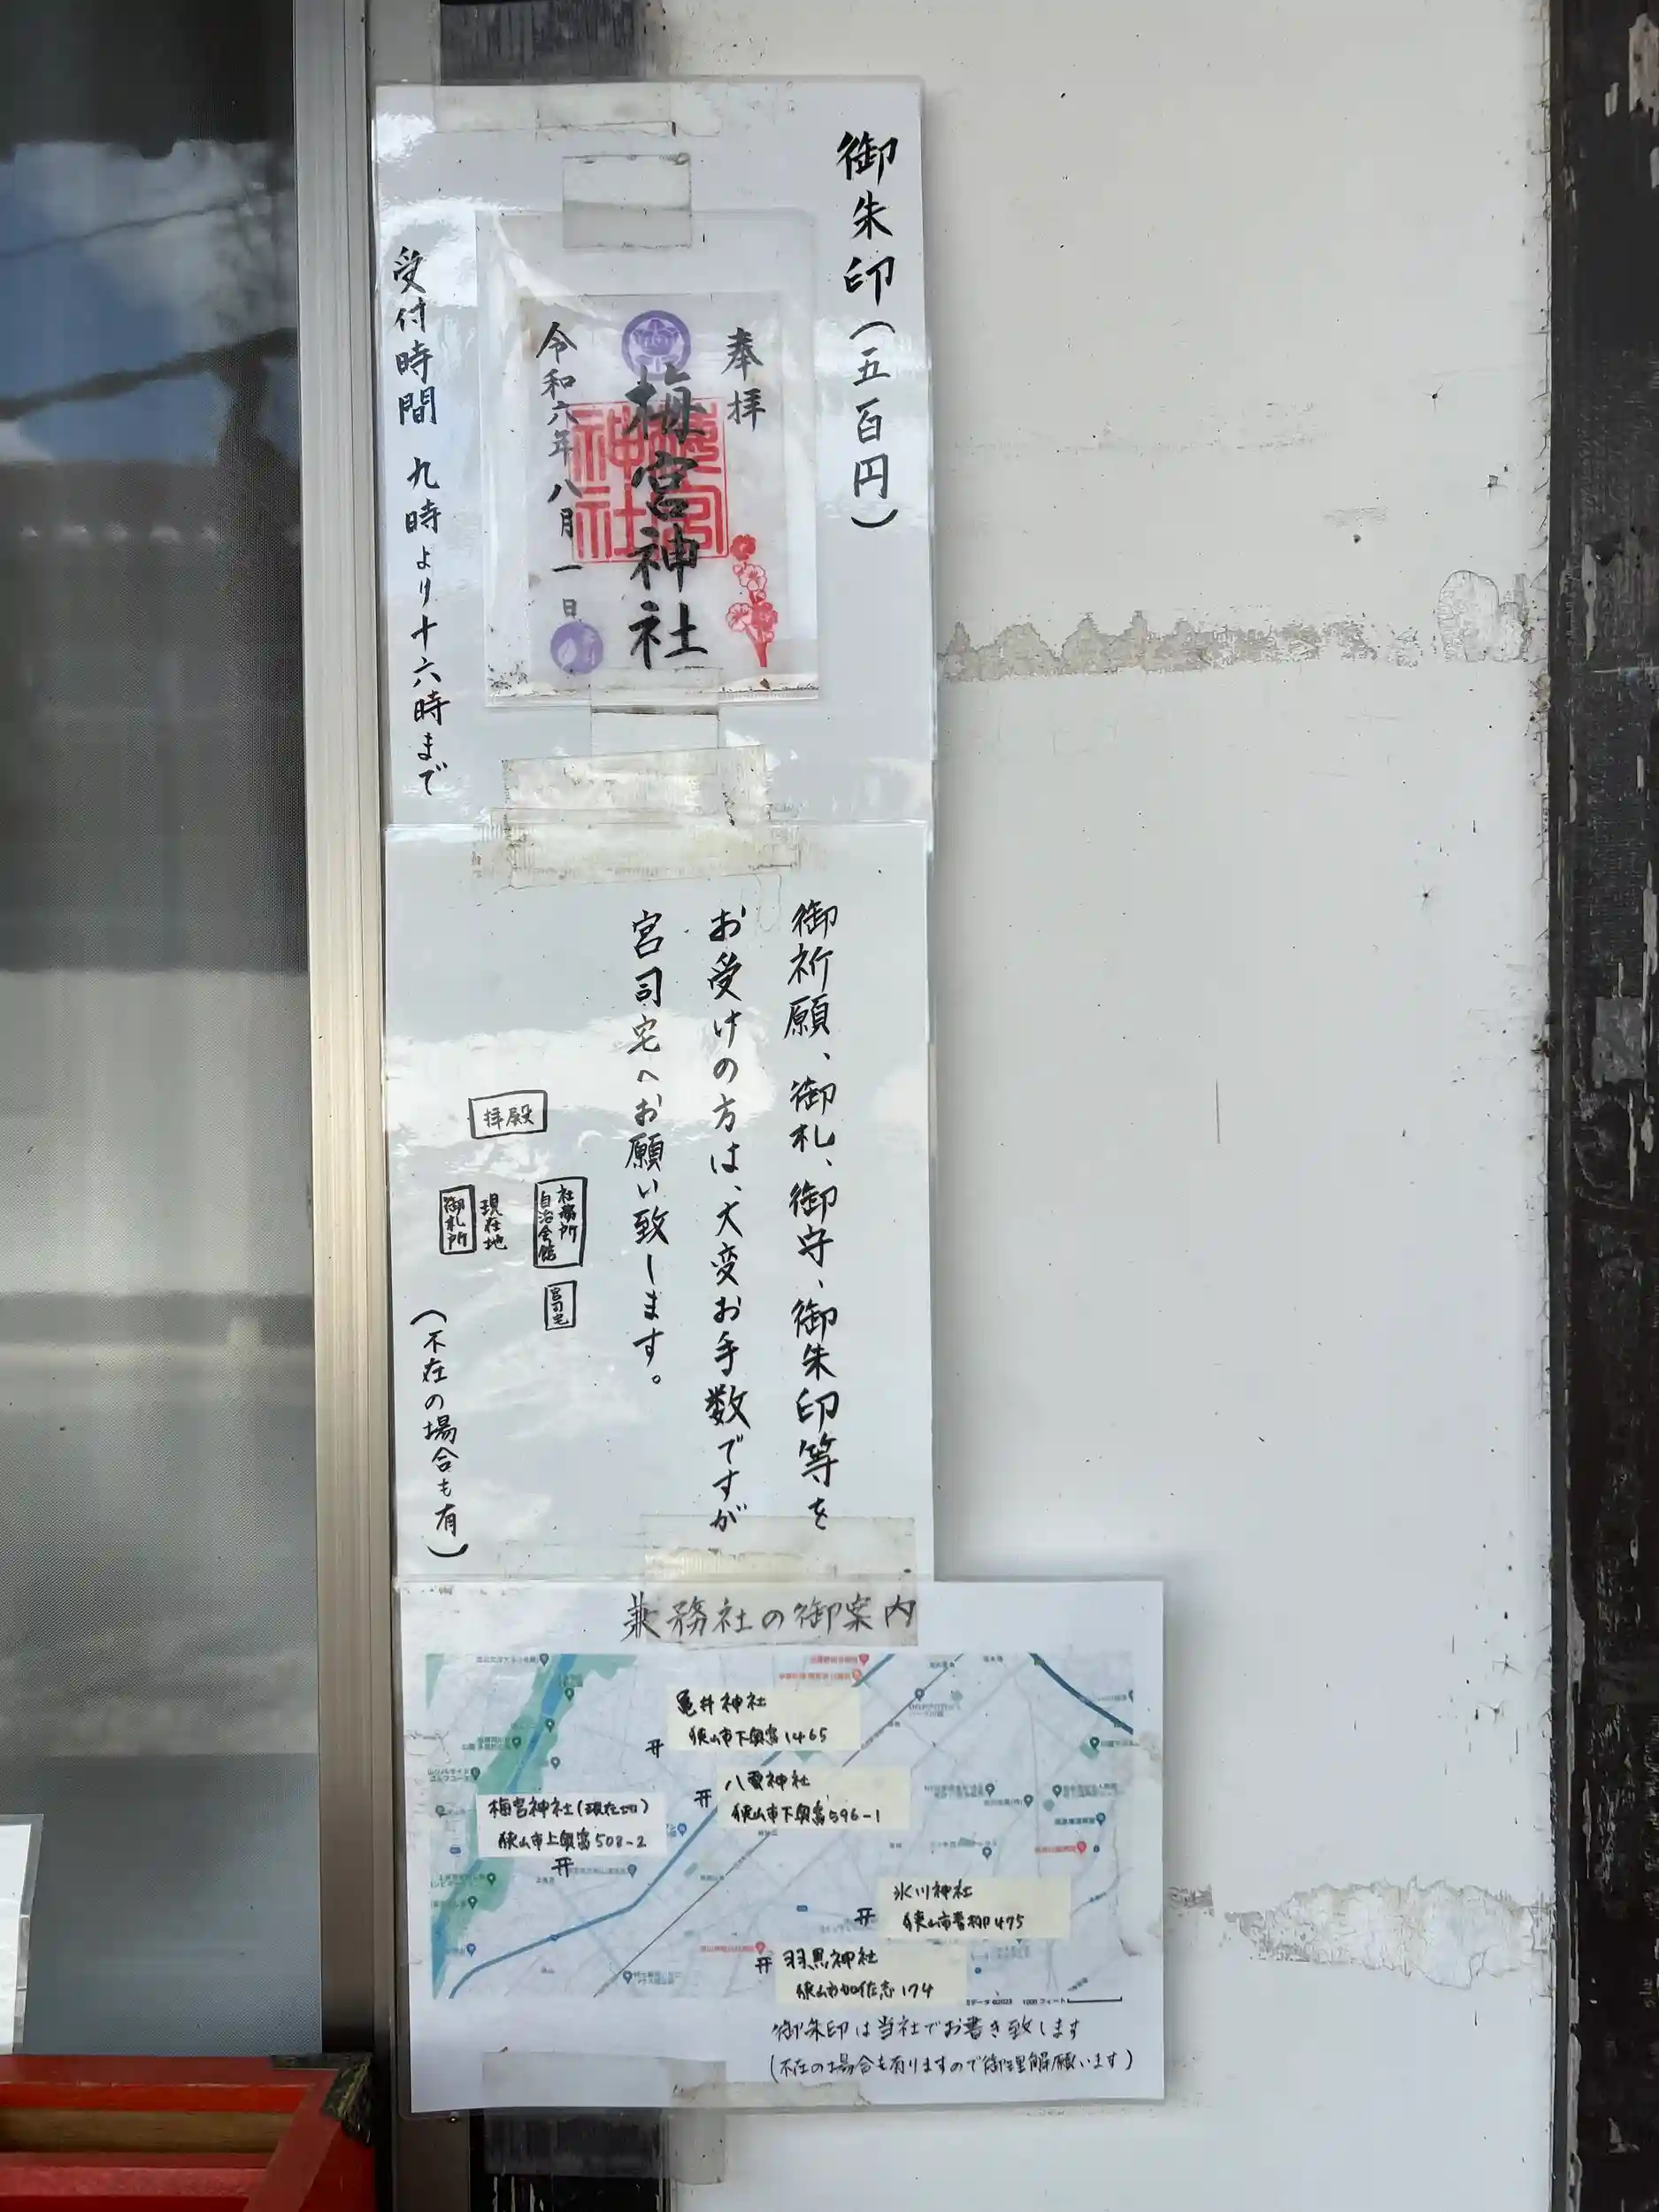 御朱印(五百円)
奉拝
梅宮神社
令和六年八月一日
受付時間 九時より十六時まで
御祈願、御札、御守、御朱印等を
お受けの方は、大変お手数ですが
宮司宅へお願い致します。
拝殿
社務所
自治会館
宮司宅
現在地
御札所
(不在の場合も有)
兼務社の御案内
亀井神社
狭山市下奥富1465
八雲神社
狭山市下奥富596-1
梅宮神社(現在地)
狭山市上奥富508-2
氷川神社
狭山市青柳475
羽黒神社
狭山市加佐志174
御朱印は当社でお書き致します
(不在の場合も有りますので御理解願います)